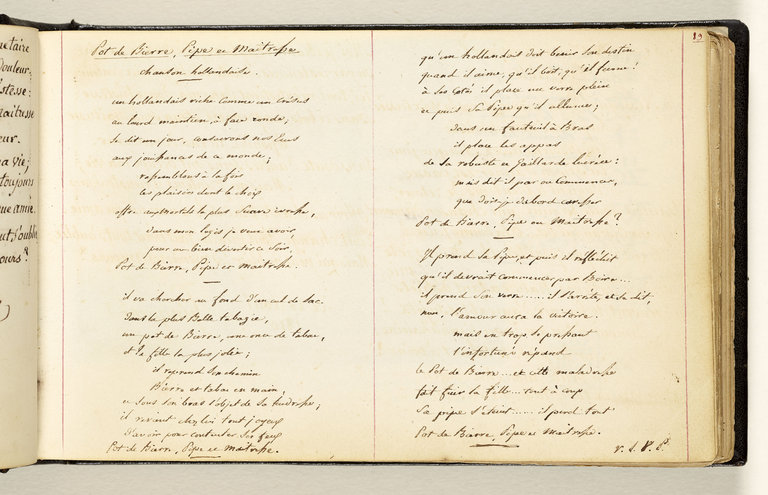 uetaire
Douleur;
stesse:
maitresse
eur.
a vie;
toujours
ue amie.
ut s'oublie
ours?
Pot de Bierre, Pipe et Maîtresse
chanson hollandaise.
un hollandais riche comme un crésus
au lourd maintien, à face ronde;
se dit un jour, consacrons nos écus
aux jouissances de ce monde;
rassemblons à la fois
les plaisirs dont le choix
offre aux mortels la plus suave ivresse,
dans mon logis je veux avoir
pour me bien divertir ce soir,
Pot de Bierre, Pipe et Maîtresse.
il va chercher au fond d'un cul de sac.
Dans la plus Belle tabagie,
un pot de Bierre, une once de tabac,
et la fille la plus jolie;
il reprend son chemin
Bierre et tabac en main,
et sous son bras l'objet de sa tendresse;
il revient chez lui tout joyeux
d'avoir pour contenter ses feux
Pot de Bierre, Pipe et Maîtresse.
19
qu'un hollandais doit bénir son destin
quand il aime, qu'il boit, qu'il fume!
à ses côtés il place un verre plein
et puis sa Pipe qu'il allume;
dans un fauteuil à Bras
il place les appas
de sa robuste et gaillarde lucrèce:
mais dit il par où Commencer,
que dois-je d'abord caresser
Pot de Bierre, Pipe ou Maîtresse?
Il prend sa Pipe, et puis il réfléchit
qu'il devrait commencer par Boire...
il prend son verre..... il s'arrête, et se dit,
non, l'amour aura la victoire.
mais en trop se pressant
l'infortuné répand
le Pot de Bierre.. et cette maladresse
fait fuir la fille... tout à coup
sa pipe s'éteint..... il perd tout
Pot de Bierre, Pipe et Maîtresse.